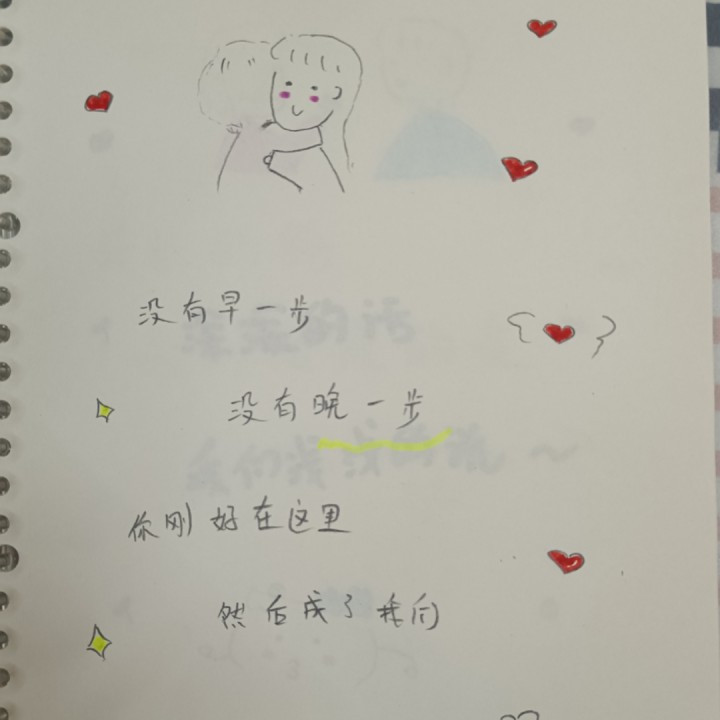 没有早一步
没有晚一步
你刚好在这里
然后成了我们